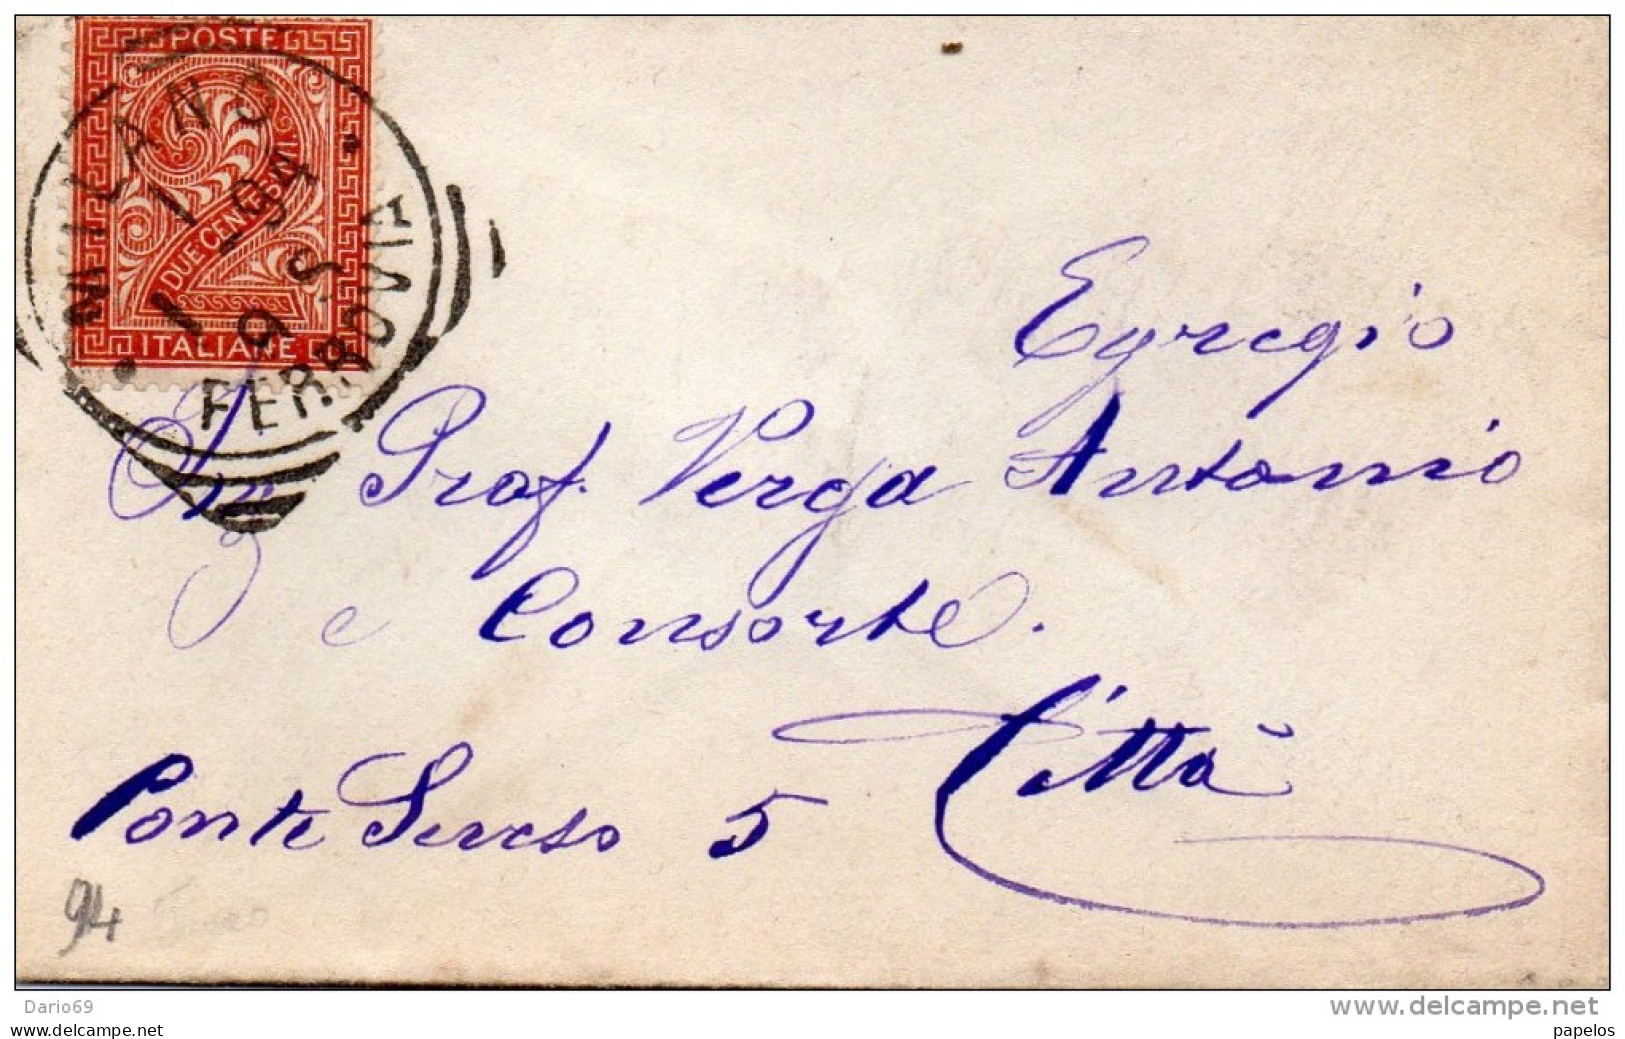 POSTE
DUE CENTESIMI
ITALIANE
MILANO
1 1-94
9 S
FERROVIA
Egregio
Sig. Prof. Verga Antonio
e Consorte.
Città
Ponte Seveso 5
94
Dario69
www.delcampe.net
papelos